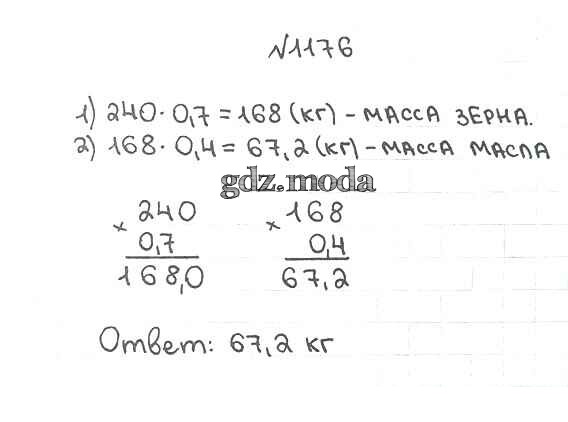 №1176
1) 240 · 0,7 = 168 (кг) - МАССА ЗЕРНА.
2) 168 · 0,4 = 67,2 (кг) - МАССА МАСЛА
gdz.moda
× 240
0,7
168,0
× 168
0,4
67,2
Ответ: 67,2 кг